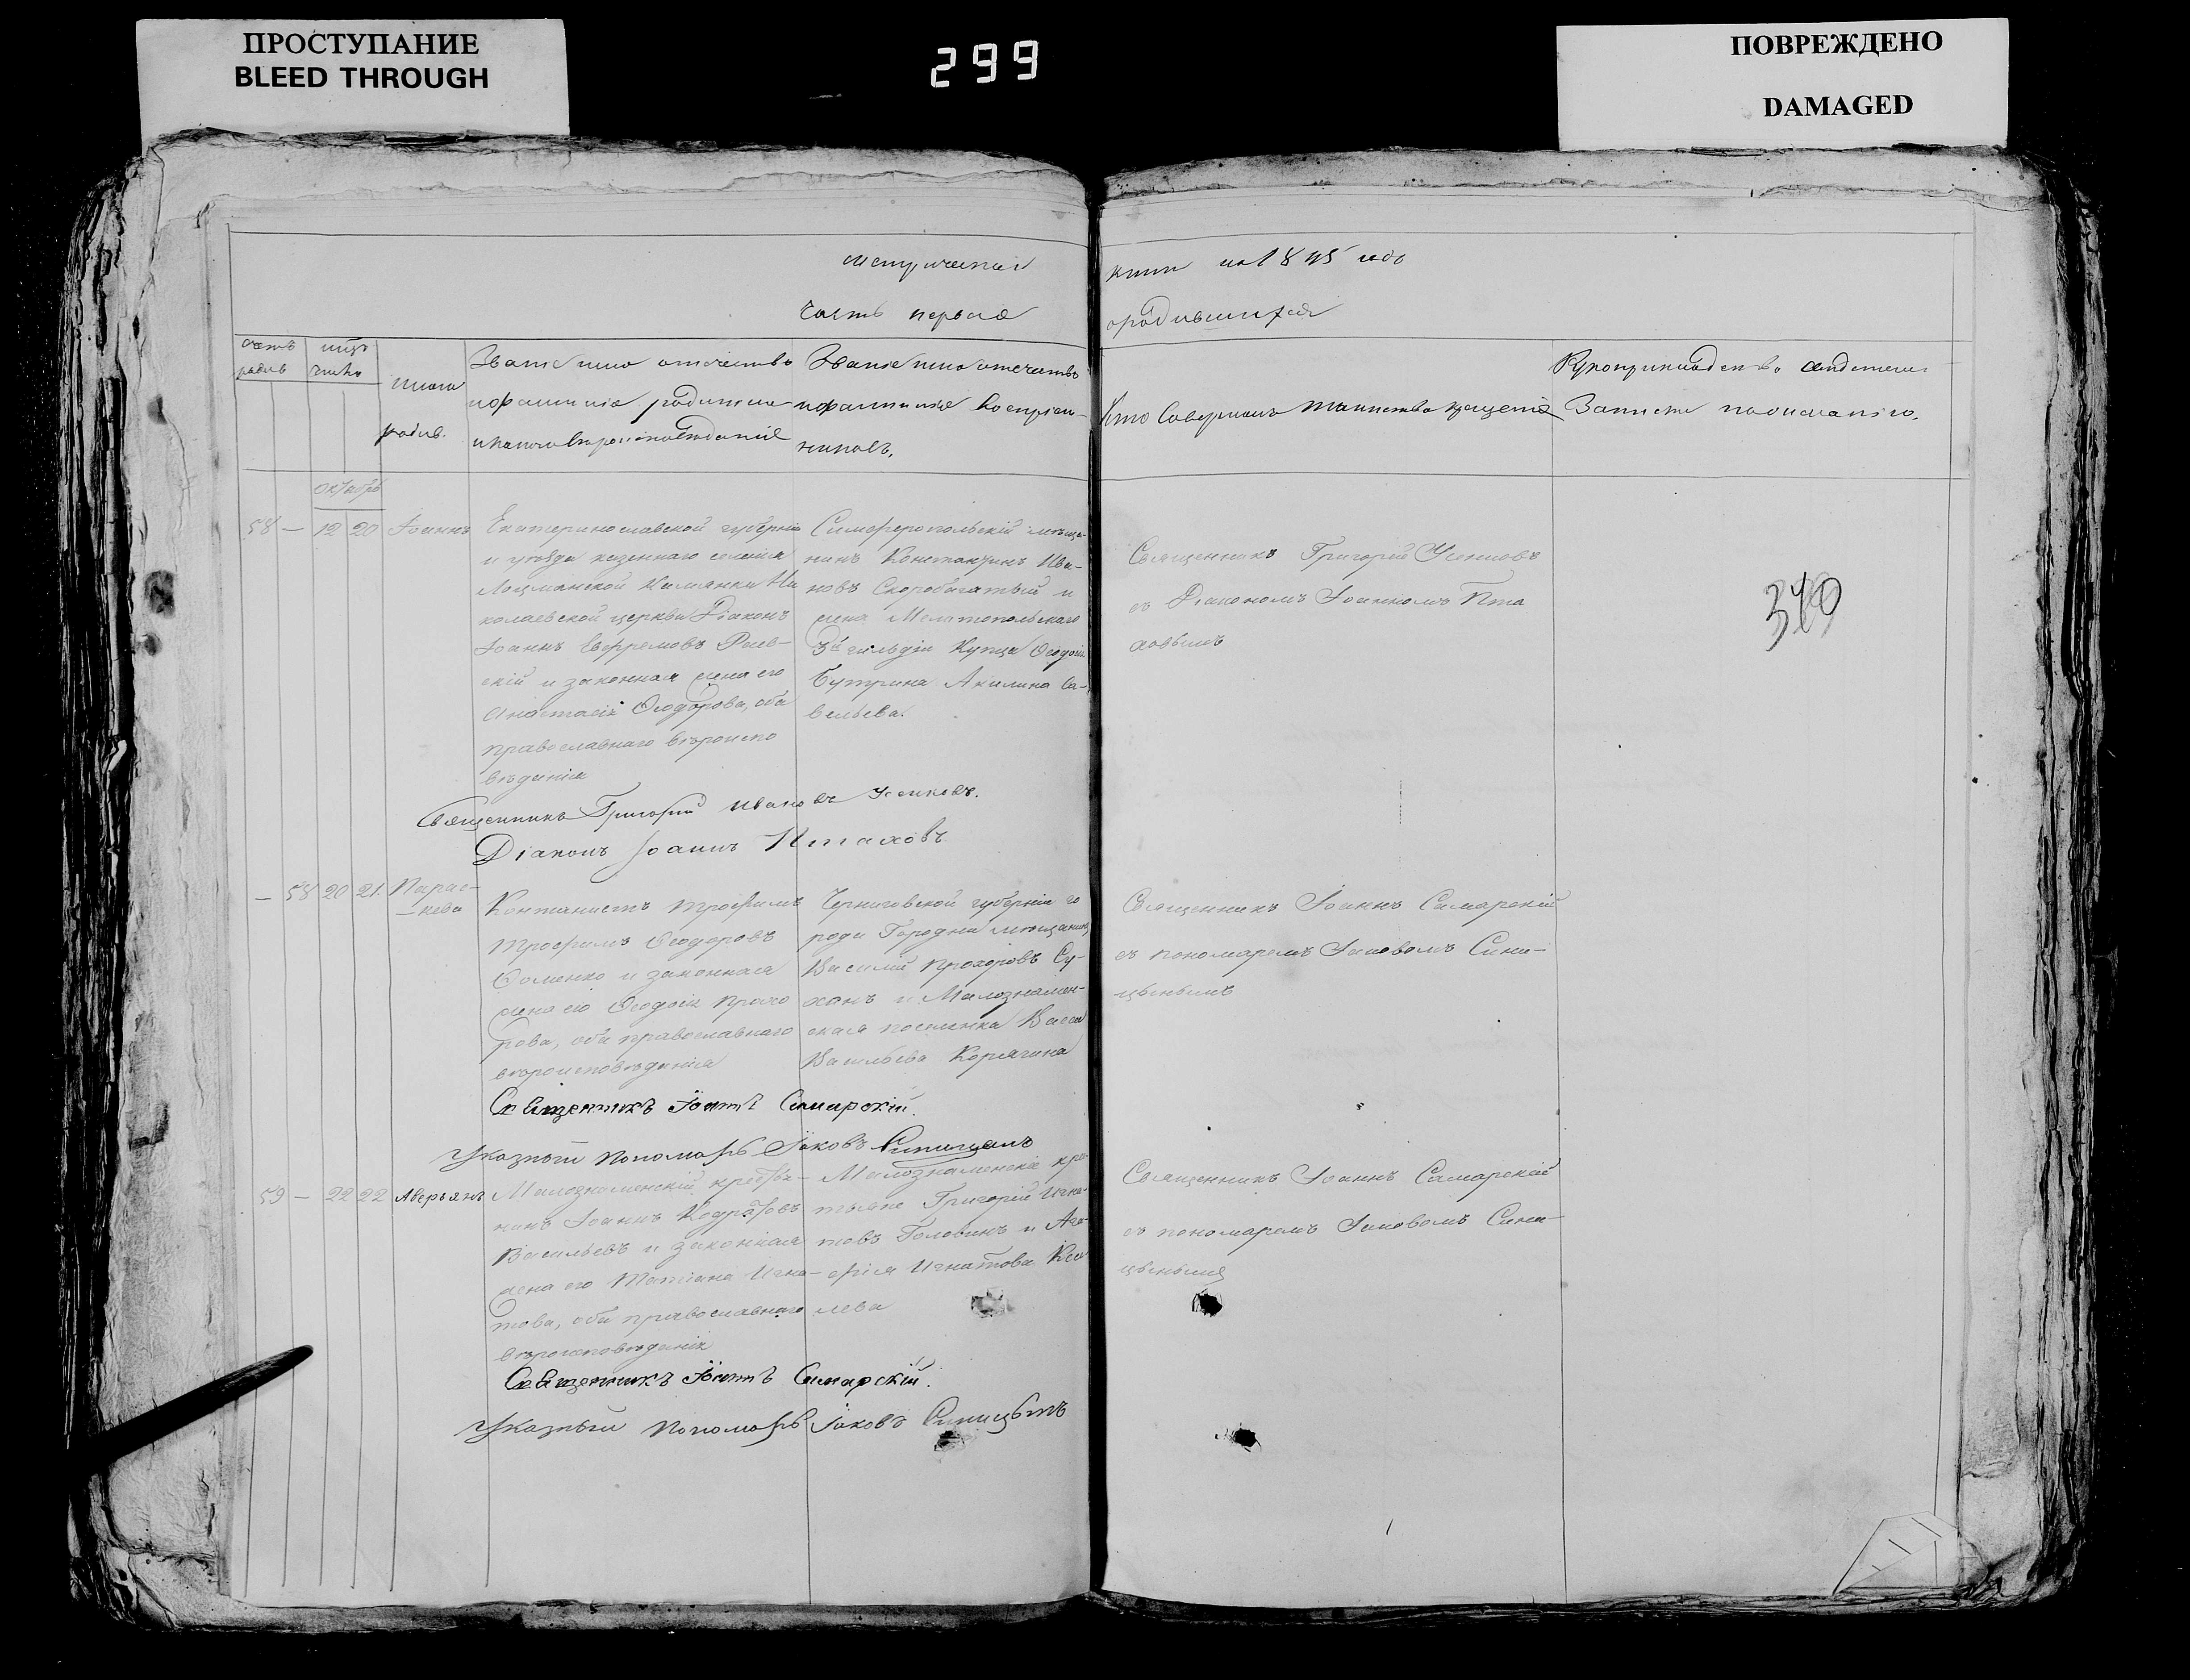 ПРОСТУПАНИЕ
BLEED THROUGH
299
ПОВРЕЖДЕНО
DAMAGED
метрической
книги на 1845 годъ
часть первая
о родившихся
Званіе имя отечество
и фамилія родителей
и какого вѣроисповѣданія
Званіе имя отечество
и фамилія воспріем-
никовъ.
Кто совершалъ таинство крещенія
Рукоприкладство свидетелей
записи по желанію.
октябрь
58 — 12 20 Іоаннъ
Екатеринославской губерніи
и уѣзда казеннаго селенія
Лоцманской Каменки Ни
колаевской церкви Діаконъ
Іоаннъ Ефремовъ Раев-
скій и законная жена его
Анастасія Ѳеодорова, оба
православнаго вѣроиспо
вѣданія
Симферопольскій мѣща-
нинъ Константинъ Ива-
новъ Скоробогатый и
жена Мелитопольскаго
3й гильдіи Купца
Бутрина Акилина Са-
вельева.
Священникъ Григорій Усенковъ
съ Діакономъ Іоанномъ Пта
ховымъ
Священникъ Григорій Ивановъ Усенковъ.
Діаконъ Іоаннъ Птаховъ
— 58 20 21 Парас-
— кева
Кантонистъ Трофимъ
Трофимъ Ѳеодоровъ
Ѳоменко и законная
жена его Ѳеодосія Прохо
рова, оба православнаго
вѣроисповѣданія
Черниговской губерніи го
рода Городни мѣщанинъ
Василій Прохоровъ Су-
ханъ и Малознамен-
ская поселянка Васса
Васильева Корягина
Священникъ Іоаннъ Самарскій
съ пономаремъ Іаковомъ Сини-
цынымъ
Священникъ Іоаннъ Самарскій.
Указный Пономарь Іаковъ Синицынъ
59 — 22 22 Аверьянъ
Малознаменскій крестья-
нинъ Іоаннъ
Васильевъ и законная
жена его Татіана Игна-
това, оба православнаго
вѣроисповѣданія
Малознаменскіе кре
стьяне Григорій Игна-
товъ Головинъ и Ага-
фія Игнатова
лева
Священникъ Іоаннъ Самарскій
съ пономаремъ Іаковомъ Сини-
цынымъ
Священникъ Іоаннъ Самарскій.
Указный Пономарь Іаковъ Синицынъ